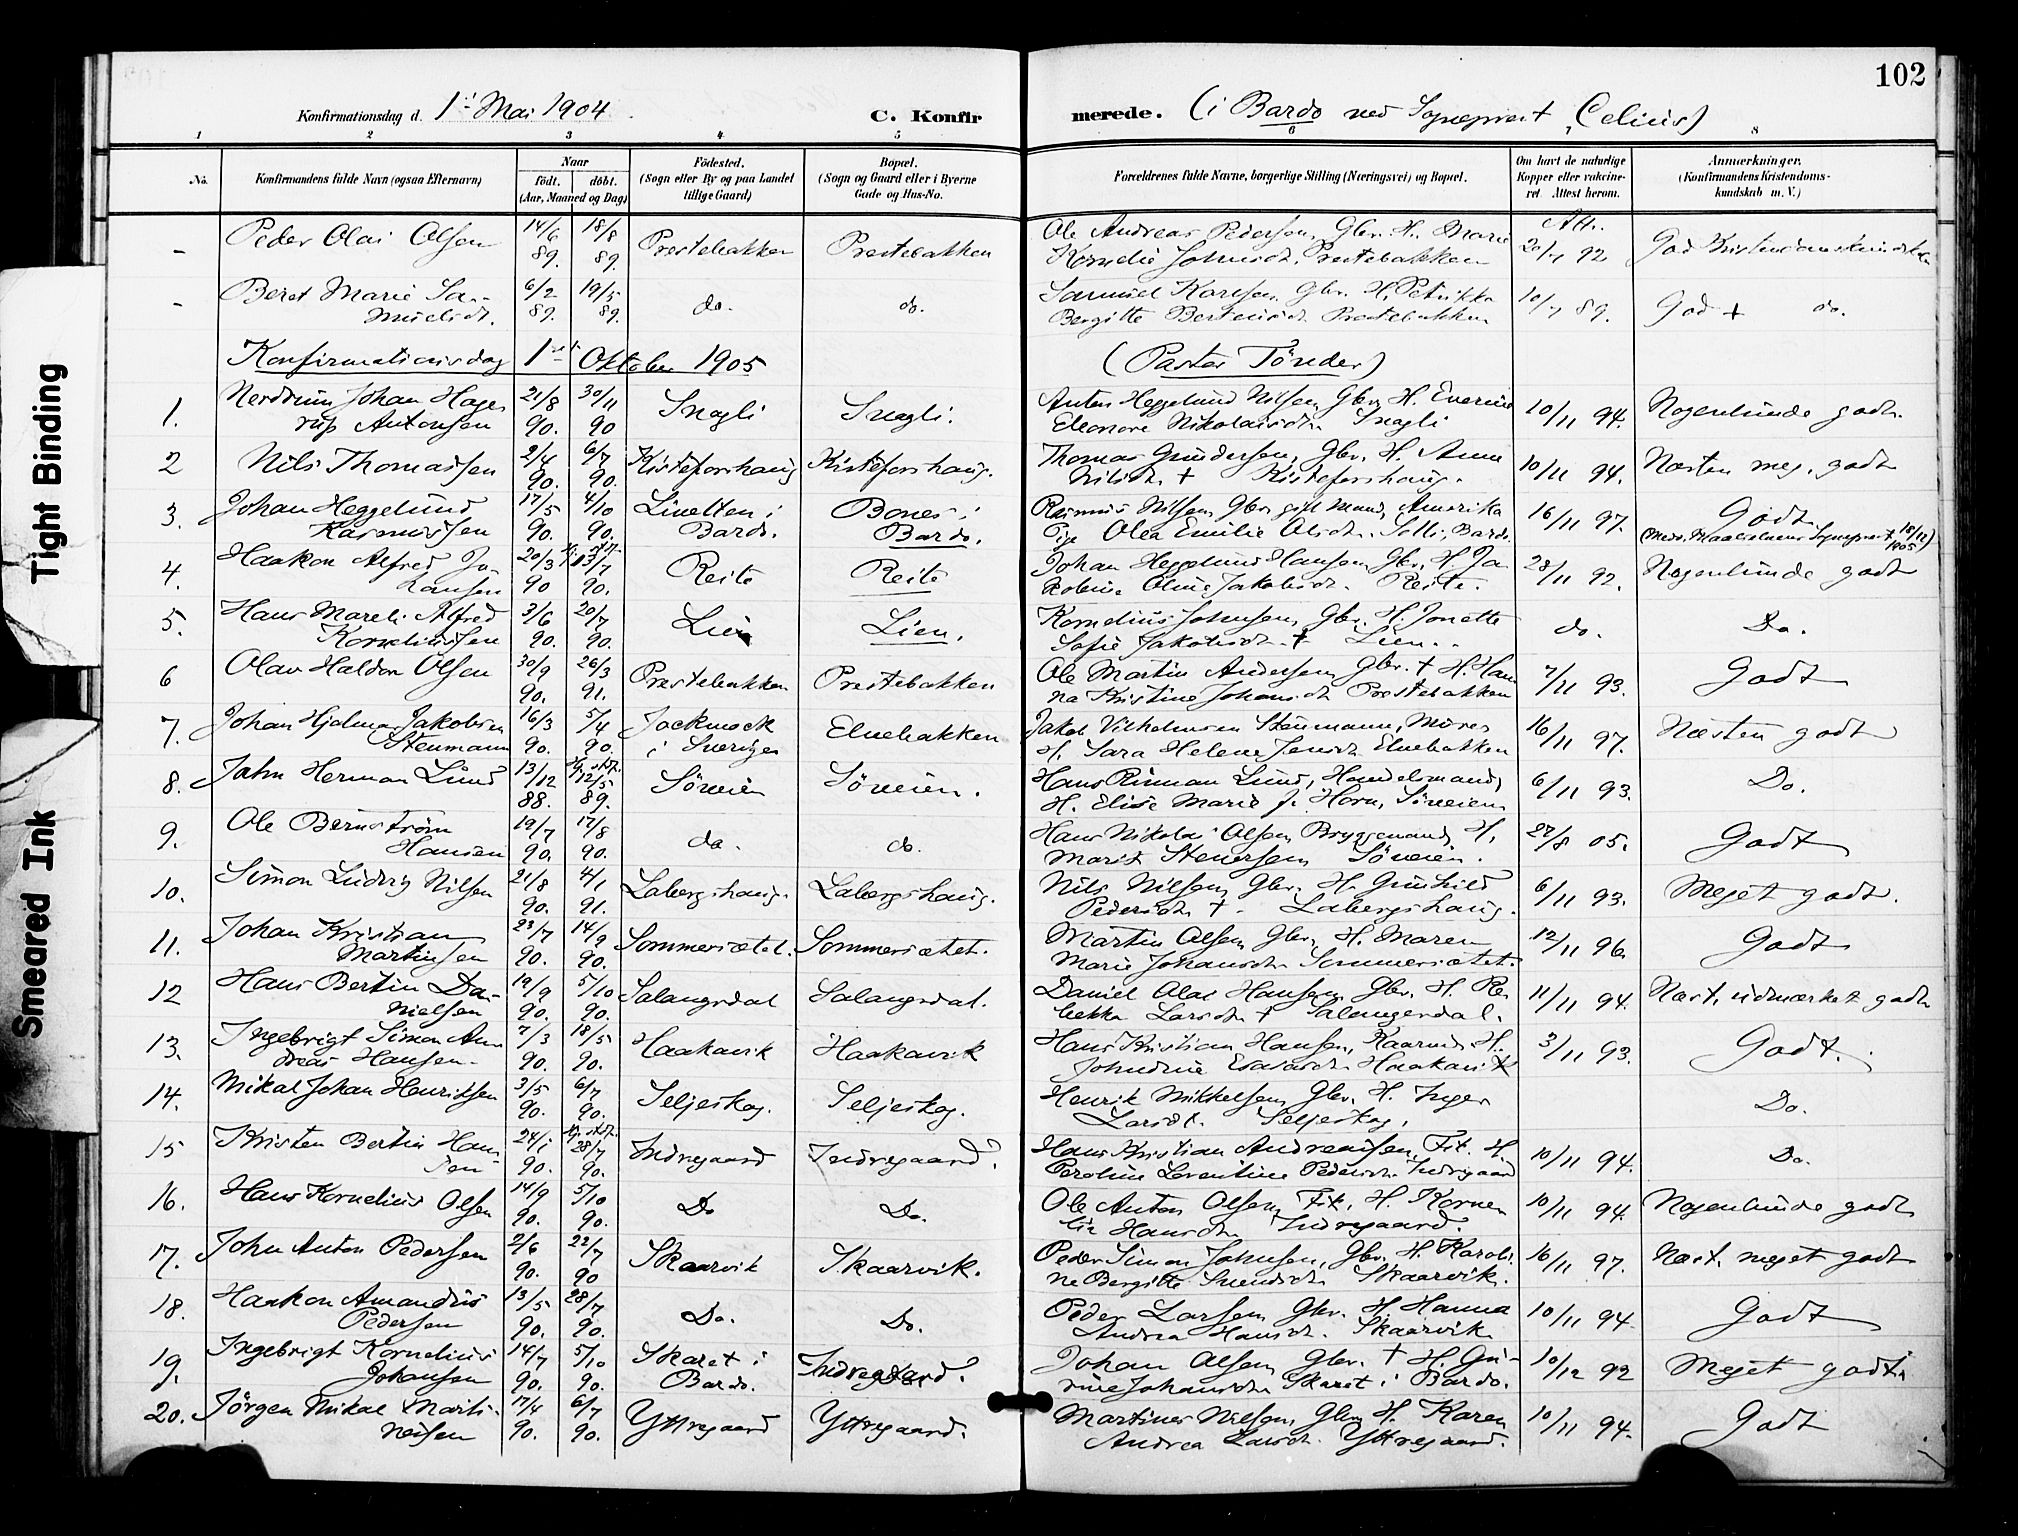 102
Konfirmationsdag d. 1ste Mai 1904
C. Konfirmerede. (i Bardo ved Sogneprest Celius)
1 2 3 4 5 6 8
No.
Konfirmandens fulde Navn (ogsaa Efternavn)
Naar
födt. döbt.
(Aar, Maaned og Dag)
Födested.
(Sogn eller By og paa Landet
tillige Gaard)
Bopæl.
(Sogn og Gaard eller i Byerne
Gade og Hus-No.
Forældrenes fulde Navne, borgerlige Stilling (Næringsvei) og Bopæl.
Om havt de naturlige
Kopper eller vaccine-
ret. Attest herom.
Anmærkninger.
(Konfirmandens Kristendoms-
kundskab m. V.)
- Peder Olai Olsen 14/6 89. 18/8 89. Prestebakken Prestebakken Ole Andreas Pedersen, Gbr. H. Marie
Kornelie Johnsdt. Prestebakken Att. 92 God Kristendomskundskab
- Beret Marie Sa-
muelsdt. 6/2 89. 19/5 89. do. do. Samuel Karlsen, Gbr. H. Petrikka
Bergitte Prestebakken 89. God + do.
Konfirmationsdag 1ste Oktober 1905 (Pastor Tönder)
1. Nerdrum Johan Hage-
rup Antonsen 21/8 90. 30/11 90 Snogli Snogli. Anton Heggelund Nilsen, Gbr. H.
Eleonore Nikolaisdtr. Snogli 10/11 94. Nogenlunde godt.
2 Nils Thomassen 2/4 90. 6/7 90. Kisteforshaug Kisteforshaug. Thomas Gundersen, Gbr. H. Anne
Nilsdt. + Kisteforshaug. 10/11 94. Næsten meg. godt
3. Johan Heggelund
Rasmussen 17/5 90. 4/10 90. i
Bardo. Bones i
Bardo. Rasmus Nilsen, Gbr. gift Mand, Amerika
Pige Olea Emilie Olsdt. Solli, Bardo 16/11 97. Godt
18/12
1905
4. Haakon Alfred Jo-
hansen 20/3 90 13/7 90. Reite Reite Johan Heggelund Hansen, Gbr. H. Ja-
kobine Oline Jakobsdt. Reite. 28/11 92. Nogenlunde godt
5. Hans Mareli Alfred
Korneliussen 3/6 90. 20/7 90. Lien Lien. Kornelius Johnsen, Gbr. H. Jonette
Sofie Jakobsdt. + Lien. do. Do.
6 Olav Haldor Olsen 30/9 90. 26/3 91. Prestebakken Prestebakken Ole Martin Andersen, Gbr. + H. Han-
na Kristine Johansdt Prestebakken 7/11 93. Godt
7. Johan Hjalmar Jakobsen
Stenmann 16/3 90. 5/4 90. Jockmock
i Sverige Elvebakken Jakob Vilhelmsen Stenmann, Murer
H. Sara Helene Jensdt Elvebakken 16/11 97. Næsten godt
8. John Herman Lund 13/12 88. 12/5 89. Sörveien Sörveien. Hans Rinman Lund, Handelsmand,
H. Elise Marie f. Horn, Sörveien 6/11 93. Do.
9. Ole Bernström
Hansen 19/7 90. 17/8 90. do. do. Hans Nikolai Olsen, Bryggemand, H.
Marit Stenersen, Sörveien. 27/8 05. Godt
10. Simon Ludvig Nilsen 21/8 90. 4/1 91. Labergshaug. Labergshaug. Nils Nilsen, Gbr. H. Gunhild
Pedersdt. +. Labergshaug. 6/11 93. Meget godt.
11. Johan Kristian
Martinsen 23/7 90. 14/9 90. Sommersætet. Sommersætet. Martin Olsen, Gbr. H. Maren
Marie Johansdt. Sommersætet. 12/11 96. Godt
12 Hans Bertin Da-
nielsen 19/9 90. 5/10 90. Salangsdal Salangsdal. Daniel Olai Hansen, Gbr. H. Re-
bekka Larsdt. + Salangsdal. 11/11 94. Næst. udmærket godt
13. Ingebrigt Simon An-
dreas Hansen. 7/3 90. 18/5 90. Haakavik Haakavik Hans Kristian Hansen, Kaarm. H.
Johndine Haakavik 3/11 93. Godt.
14. Mikal Johan Henriksen 3/5 90. 6/7 90. Seljeskog. Seljeskog. Henrik Mikkelsen, Gbr. H. Inger
Larsdt. Seljeskog. Do.
15 Kristen Bertin Han-
sen 24/1 90. 28/7 90. Indregaard Indregaard. Hans Kristian Andreassen, Fit. H.
Peroline Lorentine Pedersdt. Indregaard 10/11 94. Do.
16. Hans Kornelius Olsen 14/9 90. 5/10 90. Do Do. Ole Anton Olsen, Fit. H. Korne-
lia Hansdt. Indregaard. 10/11 94. Nogenlunde godt
17. John Anton Pedersen 2/6 90. 22/7 90 Skaarvik Skaarvik. Peder Simon Johnsen, Gbr. H. Karoli-
ne Bergitte Svendsdt. Skaarvik. 16/11 97. Næst. meget godt
18. Haakon Amandus
Pedersen 13/5 90. 28/7 90. Do. Do. Peder Larsen, Gbr. H. Hanna
Andrea Hansdt. Skaarvik 10/11 94. Godt
19. Ingebrigt Kornelius
Johansen 14/7 90. 5/10 90. Skaret i
Bardo. Indregaard. Johan Olsen, Gbr. + H. Gu-
rine Johansdt. Skaret i Bardo. 10/12 92 Meget godt
20. Jörgen Mikal Marti-
neisen 17/4 90. 6/7 90. Yttregaard Yttregaard. Martines Nilsen, Gbr. H. Karen
Andrea Larsdt. Yttregaard. 10/11 94. Godt
Tight Binding
Smeared Ink